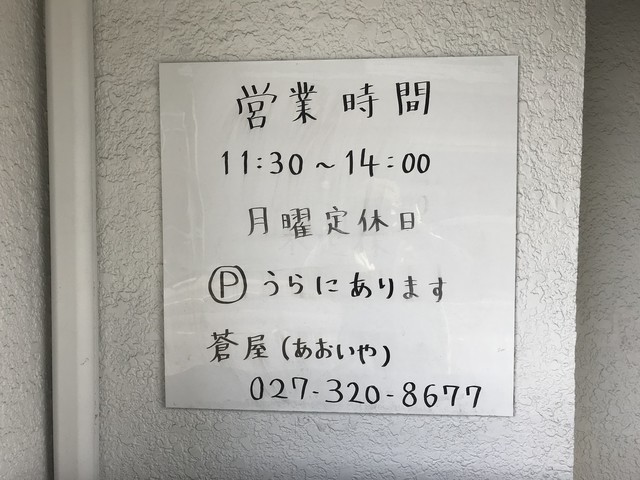 営業時間
11:30～14:00
月曜定休日
Ⓟうらにあります
蒼屋(あおいや)
027-320-8677